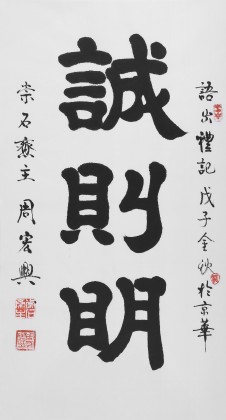 語出禮記戊子金秋於京華
誠則明
崇石齋主周宏興